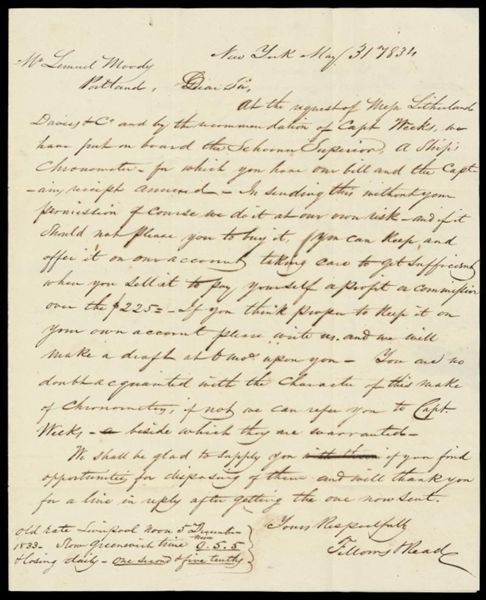 New York May 31 1834
Mr Lemuel Moody
Portland, Dear Sir,
At the request of Mess Litherland
Davies & Co and by the recommendation of Capt Weeks, we
have put on board the Schooner Superior A Ship's
Chronometer for which you have our bill and the Capt-
-ain's receipt annexed - In sending this without your
permission of course we do it at our own risk - and if it
should not please you to buy it, you can keep, and
offer it on our account taking care to get sufficient
when you sell it to pay yourself a profit or commission
over the $225= - If you think proper to keep it on
your own account please write us. and we will
make a draft at 6 mos upon you - You are no
doubt acquainted with the Character of this make
of Chronometers, if not we can refer you to Capt
Weeks - beside which they are warranted -
We shall be glad to supply you with them if you find
opportunities for disposing of them and will thank you
for a line in reply after getting the one now sent.
Yours Respectfully
Fellows & Read
Old rate Liverpool noon 5 December
1833 - Slow Greenwich time 0. 5. 5
& losing daily - one second & five tenths